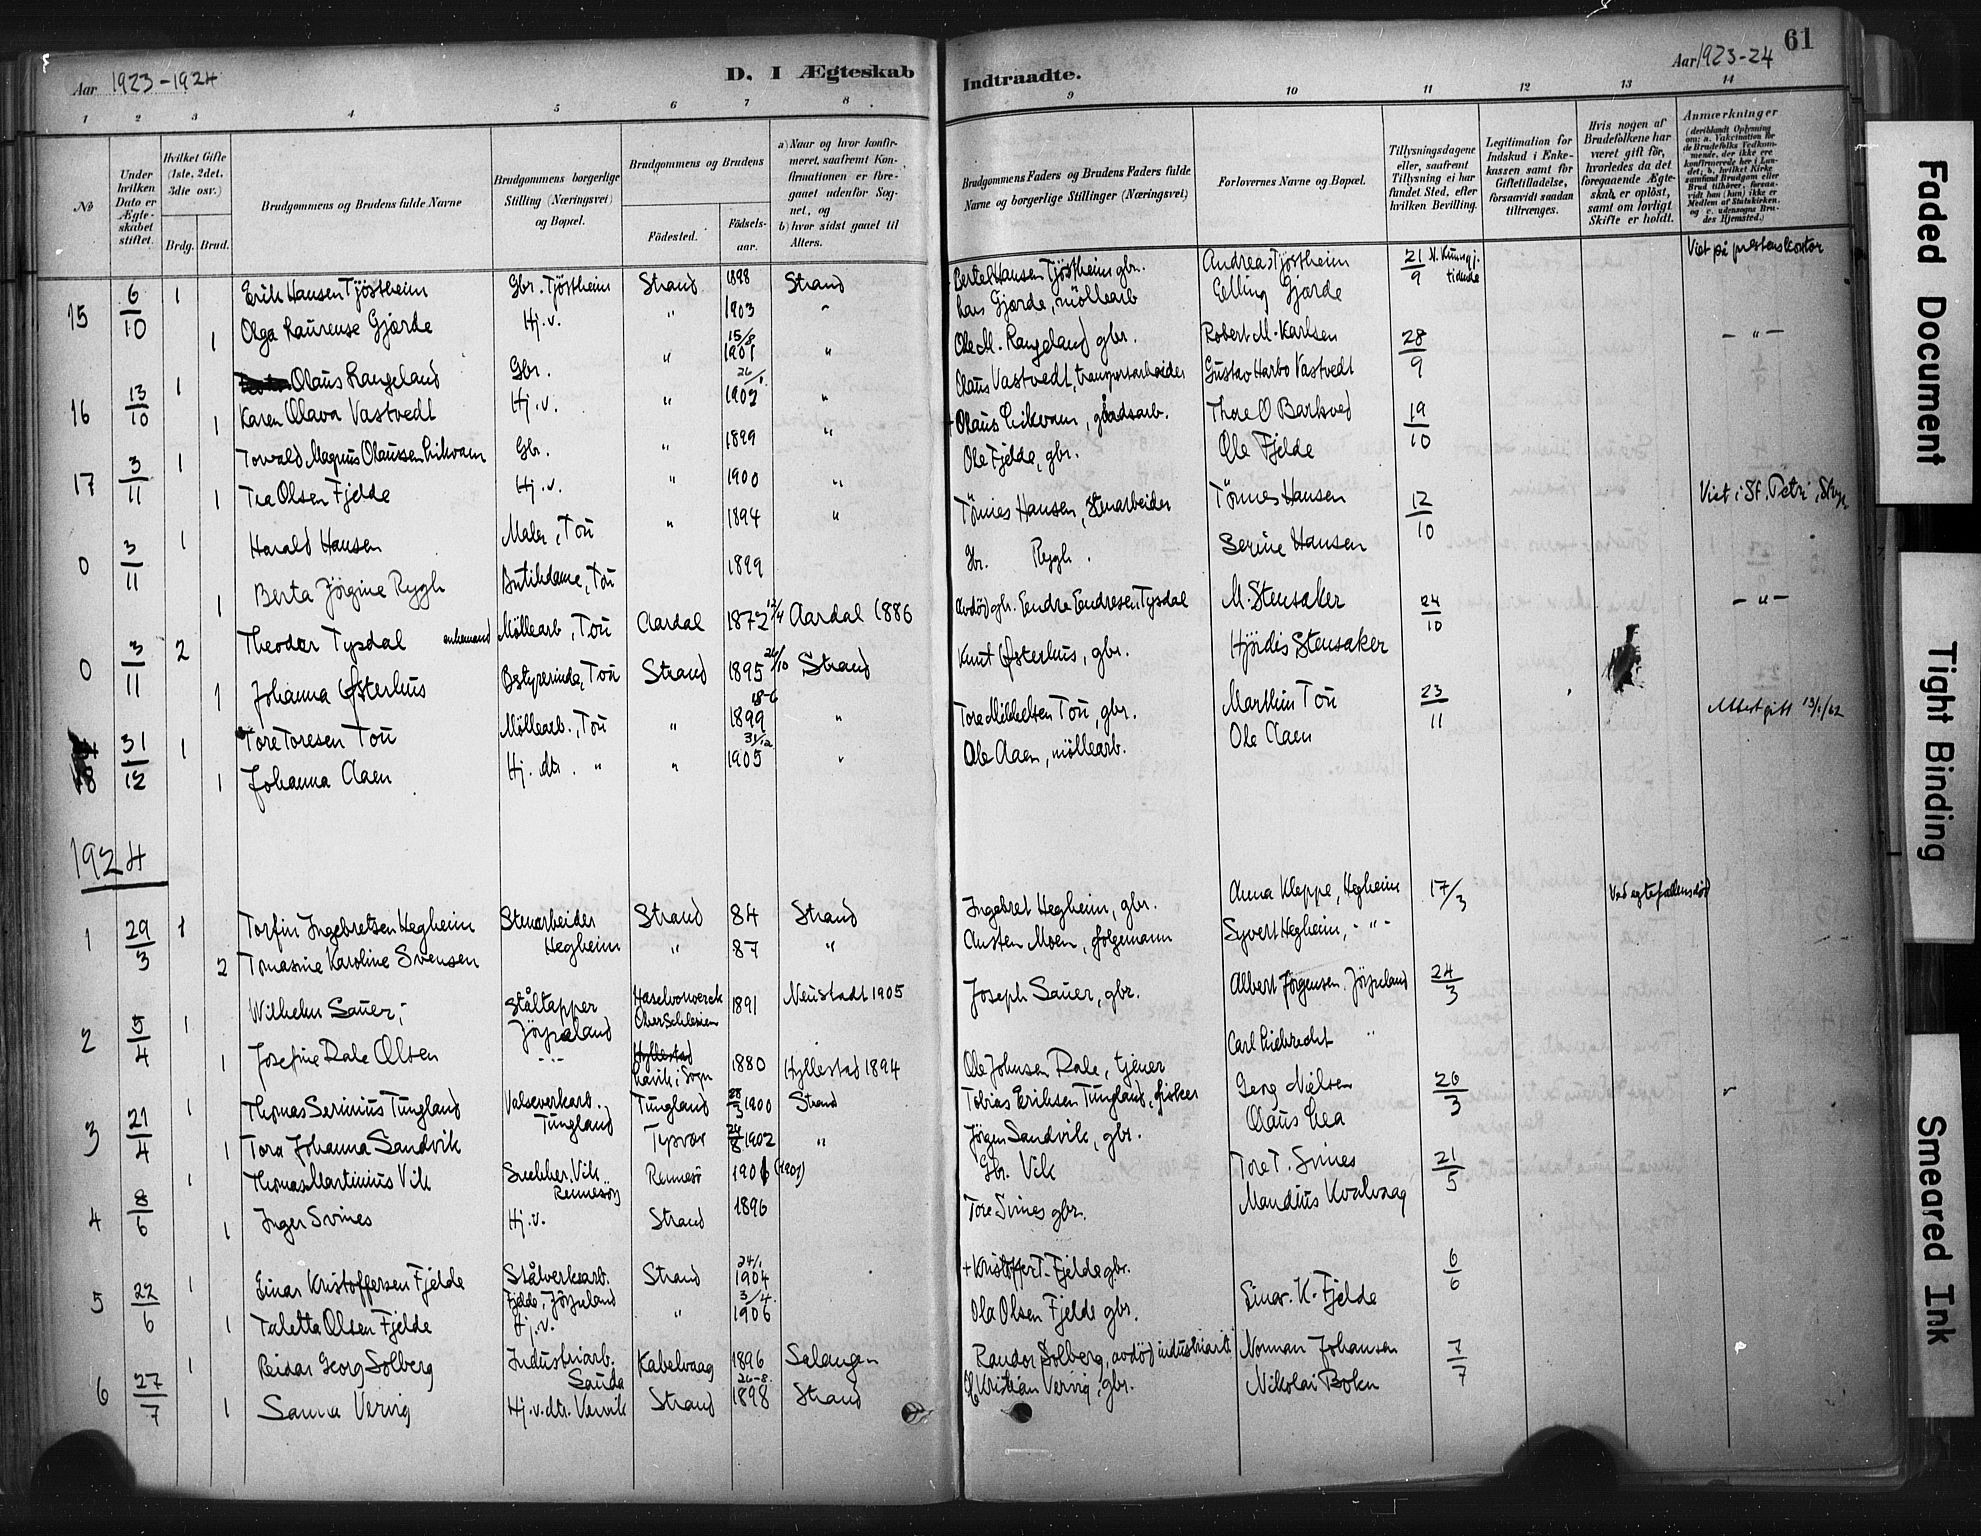 Aar 1923-1924
D. I Ægteskab
Indtraadte.
Aar 1923-24
61
1 2 3 4 5 6 7 8 9 10 11 12 13 14
No
Under hvilken Dato er Ægteskabet stiftet.
Hvilket Gifte (1ste, 2det, 3die osv.)
Brdg. Brud.
Brudgommens og Brudens fulde Navne
Brudgommens borgerlige Stilling (Næringsvei) og Bopæl.
Brudgommens og Brudens
Födested. Födselsaar.
a) Naar og hvor konfirmeret, saafremt Konfirmationen er foregaaet udenfor Sognet, og
b) hvor sidst gaaet til Alters.
Brudgommens Faders og Brudens Faders fulde Navne og borgerlige Stillinger (Næringsvei)
Forlovernes Navne og Bopæl.
Tillysningsdagene eller, saafremt Tillysning ei har fundet Sted, efter hvilken Bevilling.
Legitimation for Indskud i Enkekassen samt for Giftetilladelse, forsaavidt saadan tiltrænges.
Hvis nogen af Brudefolkene har været gift før, hvorledes da det foregaaende Ægteskab er oplöst, samt om lovligt Skifte er holdt.
Anmærkninger
(deriblandt Oplysning om: a. Vakcination for de Brudefolks Vedkommende, der ikke ere konfirmerede her i Landet; b. hvilket Kirkesamfund Brudgom eller Brud tilhörer, forsaavidt han (hun) ikke er Medlem af Statskirken, og c. udensogns Brudes Hjemsted.)
15 6/10 1 Erik Hansen Tjöstheim Gbr. Tjöstheim Strand 1898 Strand Bertel Hansen Tjöstheim gbr. Andreas Tjöstheim 21/9 Viet på prestens kontor
1 Olga Laurense Gjorde Hj.v. " 1903 " Lars Gjorde, möllearb Elling Gjorde
16 13/10 1 Olaus Rangeland Gbr. " 15/8 1901 " Ole M. Rangeland gbr. Robert M. Karlsen 28/9 - " -
1 Karen Olava Vastvedt Hj.v. " 26/1 1902 " Olaus Vastvedt, transportarbeider Gustav Harbo Vastvedt
17 3/11 1 Torvald Magnus Olaussen Eikvam Gbr. " 1899 " + Olaus Eikvam, gårdsarb. Thore O Barkved 19/10
1 Tea Olsen Fjelde Hj.v. " 1900 " Ole Fjelde, gbr. Ole Fjelde
0 3/11 1 Harald Hansen Maler, Tou " 1894 " Tönnes Hansen, Stenarbeider Tönnes Hansen 12/10 Viet i St. Petri
1 Berta Jörgine Rygh Butikdame, Tou 1899 Gbr. Rygh. Serine Hansen
0 3/11 2 Theodor Tysdal enkemand Möllearb, Tou Aardal 1872 12/4 Aardal 1886 Avdöd gbr. Endre Endresen Tysdal M. Stensaker 24/10 - " -
1 Johanna Østerhus Bestyrerinde, Tou Strand 1895 26/10 Strand Knut Østerhus, gbr. Hjördis Stensaker
18 31/12 1 Tore Toresen Tou Möllearb., Tou " 18-6 1899 " Tore Mikkelsen Tou, gbr. Marthin Tou 23/11 Attest gitt 13/1/62
1 Johanna Aaen Hj. dtr. " " 31/12 1905 " Ole Aaen, möllearb. Ole Aaen
1924
1 29/3 1 Torfin Ingebretsen Hegheim Stenarbeider Strand 84 Strand Ingebret Hegheim, gbr. Anna Kleppe, Hegheim 17/3 Ved egtefællens död
2 Tomasine Karoline Svensen Hegheim " 87 " Austen Moen, folgemann Syvert Hegheim, - " -
2 5/4 1 Wilhelm Sauer; Ståltapper Jörpeland Ober Schlesien 1891 Neustadt 1905 Joseph Sauer, gbr. Albert Jörgensen. Jörpeland 24/3
1 Josefine Rale Olsen - " - Hyllestad Lavik i Sogn 1880 Hyllestad 1894 Ole Johnsen Rale, tjener Carl Liebrecht "
3 21/4 1 Thomas Serinius Tungland Valseverkarb. Tungland Tungland 28/3 1900 Strand Tobias Eriksen Tungland, fisker Georg Nielsen 26/3
1 Tora Johanna Sandvik Tysvær 24/8 1902 " Jörgen Sandvik, gbr. Olaus Lea
4 8/6 1 Thomas Martinius Vik Snekker. Vik Rennesöy Rennesö 1901 (1901) Gbr. Vik Tore T. Svines 21/5
1 Inger Svines Hj.v. Strand 1896 Tore Svines gbr. Mandius Kvalvaag
5 22/6 1 Einar Kristoffersen Fjelde Stålverksarb. Fjelde, Jörpeland Strand 24/1 1904 + Kristoffer T. Fjelde gbr. Einar K. Fjelde 6/6
1 Taletta Olsen Fjelde Hj.v. " 3/4 1906 Ola Olsen Fjelde gbr.
6 27/7 1 Reidar Georg Solberg Industriarb. Sauda Kabelvaag 1896 Salangen Randor Solberg, avdöd industriarb Norman Johansen 7/7
1 Sanna Vervig Hj.v. dtr. Vervik Strand 26-8. 1898 Strand Kristian Vervig, gbr. Nikolai Bokn
Faded Document
Tight Binding
Smeared Ink